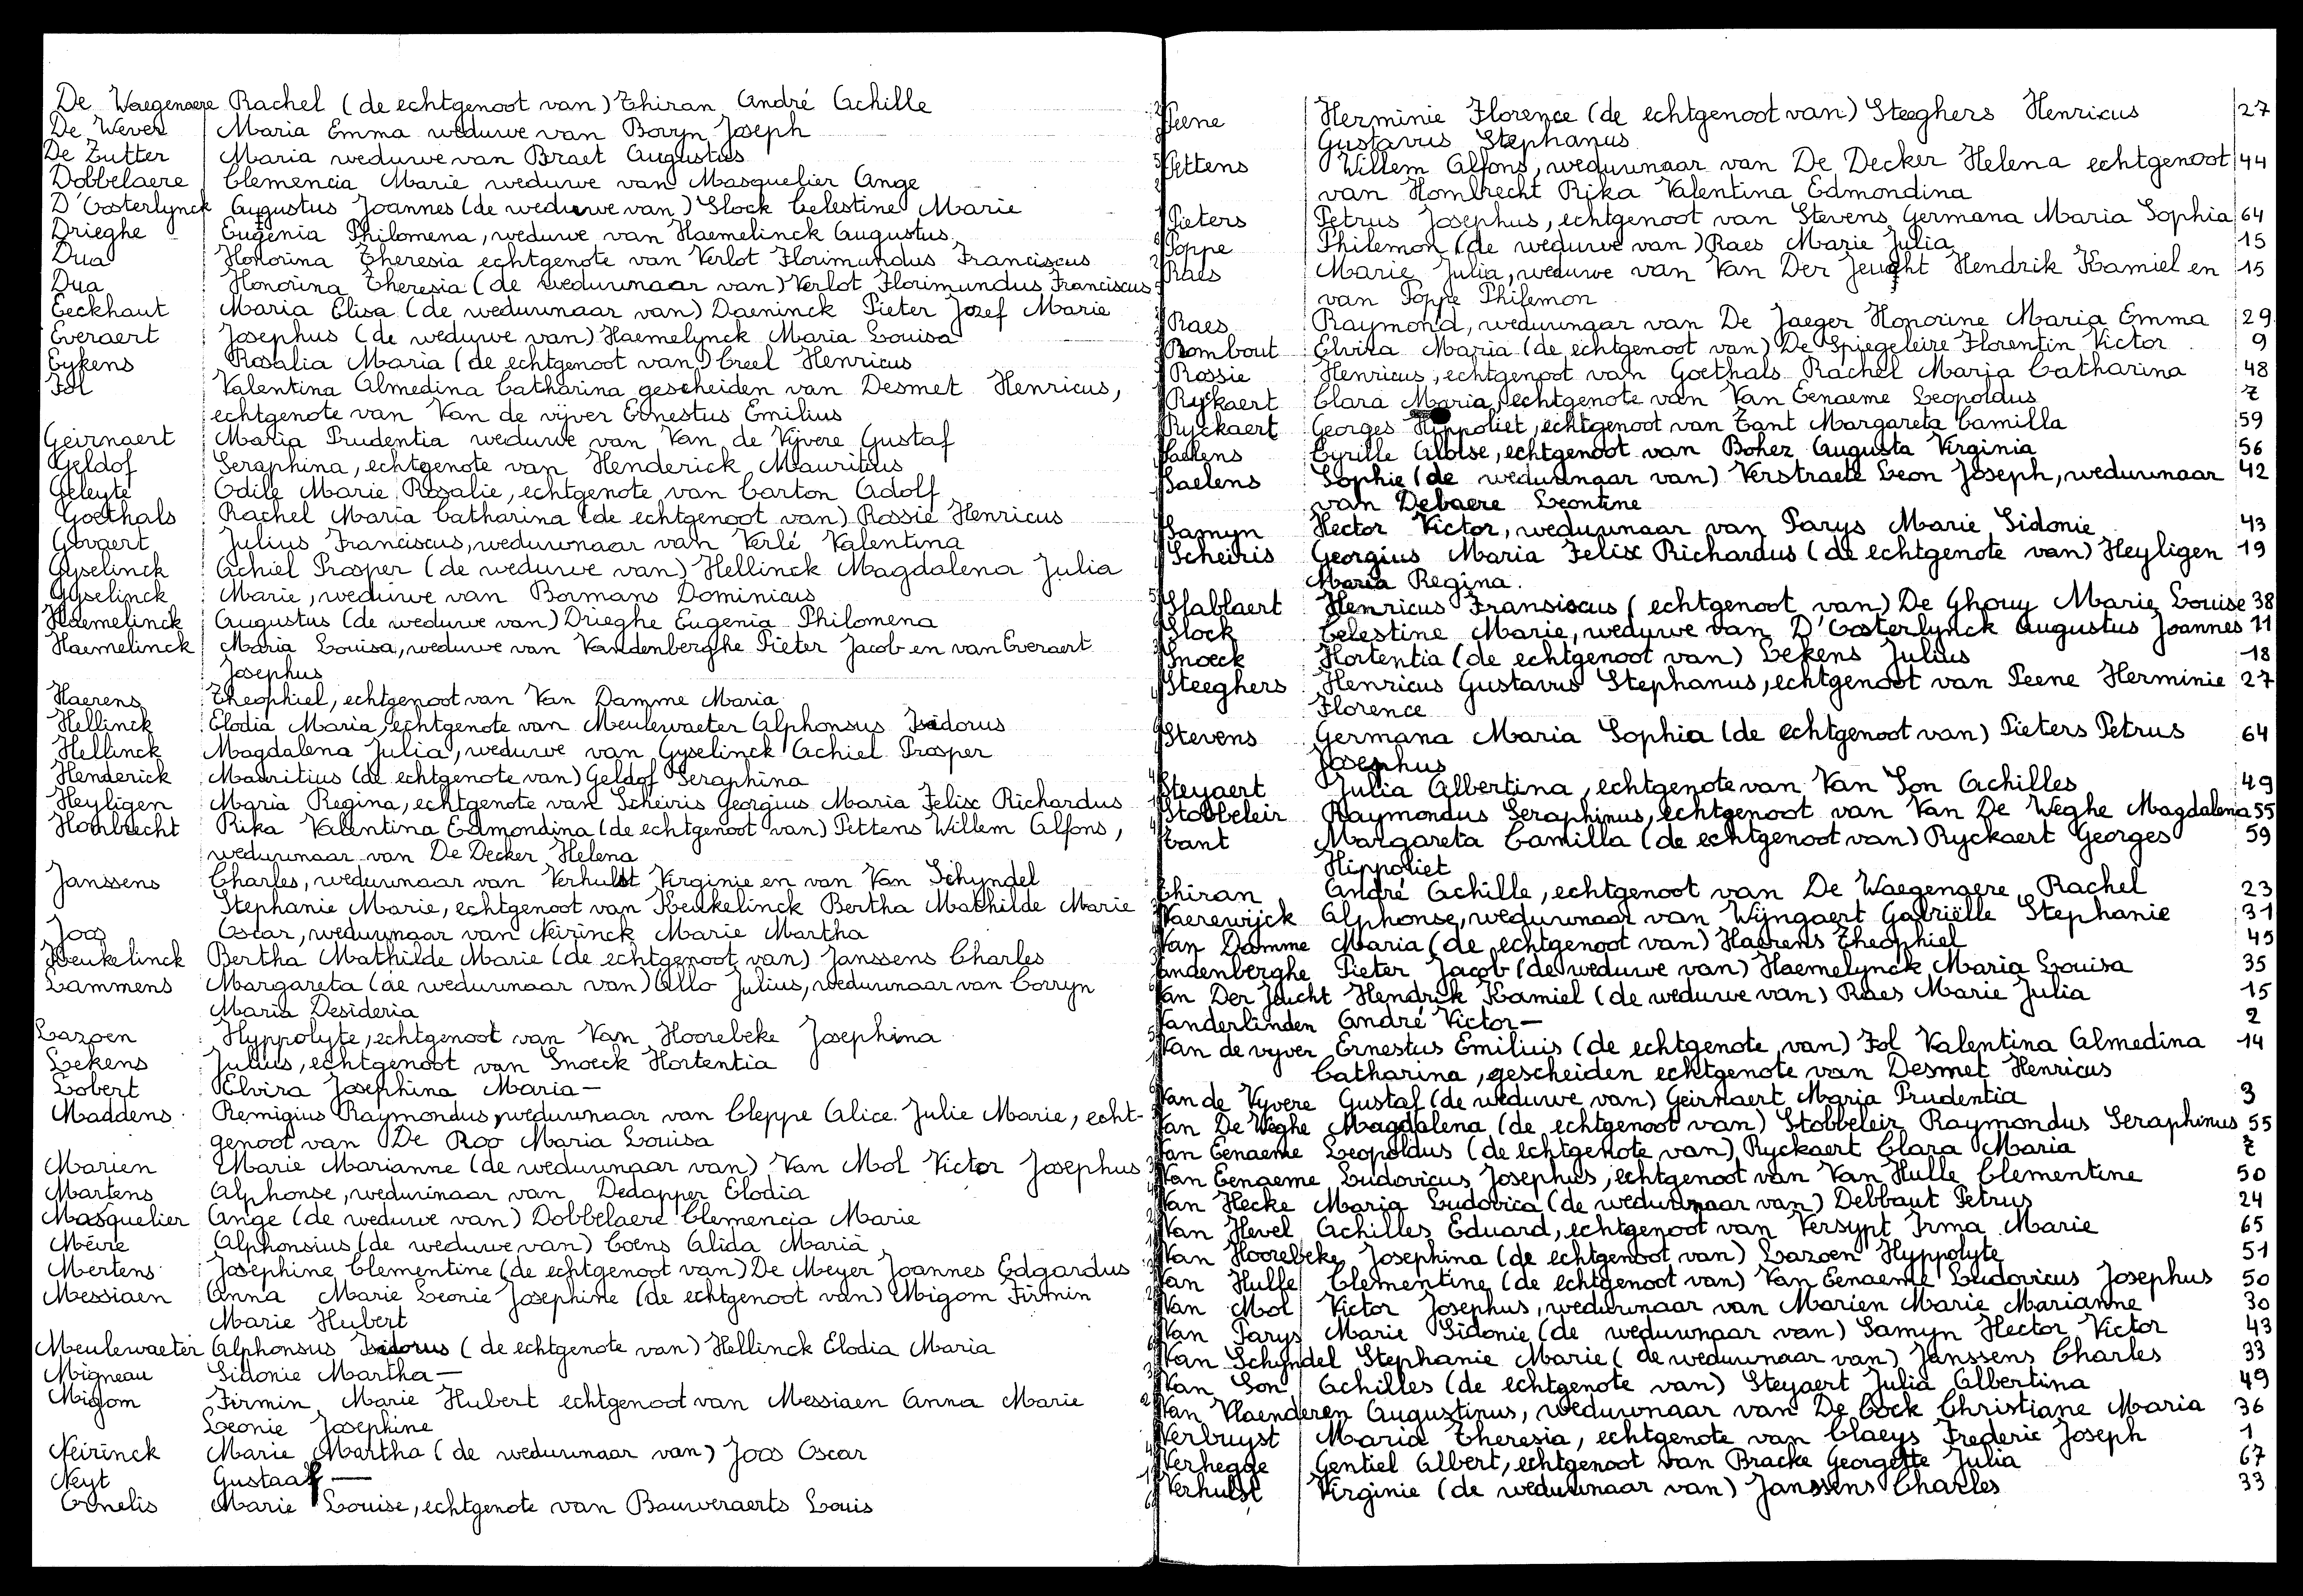 De Waegenaere Rachel (de echtgenoot van) Thiran André Achille
De Wever Maria Emma weduwe van Boryn Joseph
De Zutter Maria weduwe van Braet Augustus
Dobbelaere Clemencia Marie weduwe van Masquelier Ange
D'Oosterlynck Augustus Joannes (de weduwe van) Slock Celestine Marie
Drieghe Eugenia Philomena, weduwe van Haemelinck Augustus
Dua Honorina Theresia echtgenote van Verlot Florimundus Franciscus
Dua Honorina Theresia (de weduwnaar van) Verlot Florimundus Franciscus
Eeckhaut Maria Elisa (de weduwnaar van) Daeninck Pieter Jozef Marie
Everaert Josephus (de weduwe van) Haemelynck Maria Louisa
Eykens Rosalia Maria (de echtgenoot van) Creel Henricus
Fol Valentina Almedina Catharina gescheiden van Desmet Henricus,
echtgenote van Van de vijver Ernestus Emilius
Geirnaert Maria Prudentia weduwe van Van de Vijvere Gustaf
Geldof Seraphina, echtgenote van Henderick Mauritius
Geleyte Odile Marie Rosalie, echtgenote van Carton Adolf
Goethals Rachel Maria Catharina (de echtgenoot van) Rossie Henricus
Govaert Julius Franciscus, weduwnaar van Verlé Valentina
Gyselinck Achiel Prosper (de weduwe van) Hellinck Magdalena Julia
Gyselinck Marie, weduwe van Bormans Dominicus
Haemelinck Augustus (de weduwe van) Drieghe Eugenia Philomena
Haemelinck Maria Louisa, weduwe van Vandenberghe Pieter Jacob en van Everaert
Josephus
Haerens Theophiel, echtgenoot van Van Damme Maria
Hellinck Elodia Maria, echtgenote van Meulewaeter Alphonsus Isidorus
Hellinck Magdalena Julia, weduwe van Gyselinck Achiel Prosper
Henderick Mauritius (de echtgenote van) Geldof Seraphina
Heyligen Maria Regina, echtgenote van Scheiris Georgius Maria Felix Richardus
Hombrecht Rika Valentina Edmondina (de echtgenoot van) Pettens Willem Alfons,
weduwnaar van De Decker Helena
Janssens Charles, weduwnaar van Verhulst Virginie en van Van Schyndel
Stephanie Marie, echtgenoot van Keukelinck Bertha Mathilde Marie
Joos Oscar, weduwnaar van Neirinck Marie Martha
Keukelinck Bertha Mathilde Marie (de echtgenoot van) Janssens Charles
Lammens Margareta (de weduwnaar van) Allo Julius, weduwnaar van Corryn
Maria Desideria
Lazoen Hyppolyte, echtgenoot van Van Hoorebeke Josephina
Lekens Julius, echtgenoot van Snoeck Hortentia
Lobert Elvira Josephina Maria —
Maddens Remigius Raymondus, weduwnaar van Cleppe Alice Julie Marie, echt-
genoot van De Roo Maria Louisa
Marien Marie Marianne (de weduwnaar van) Van Mol Victor Josephus
Martens Alphonse, weduwnaar van Dedapper Elodia
Masquelier Ange (de weduwe van) Dobbelaere Clemencia Marie
Mévre Alphonsius (de weduwe van) Coens Alida Maria
Mertens Josephine Clementine (de echtgenoot van) De Meyer Joannes Edgardus
Messiaen Anna Marie Leonie Josephine (de echtgenoot van) Migom Firmin
Marie Hubert
Meulewaeter Alphonsus Isidorus (de echtgenote van) Hellinck Elodia Maria
Migneau Sidonie Martha —
Migom Firmin Marie Hubert echtgenoot van Messiaen Anna Marie
Leonie Josephine
Neirinck Marie Martha (de weduwnaar van) Joos Oscar
Neyt Gustaaf —
Ornelis Marie Louise, echtgenote van Bauweraerts Louis
Peene Herminie Florence (de echtgenoot van) Steeghers Henricus 27
Gustavus Stephanus
Pettens Willem Alfons, weduwnaar van De Decker Helena echtgenoot 44
van Hombrecht Rika Valentina Edmondina
Pieters Petrus Josephus, echtgenoot van Stevens Germana Maria Sophia 64
Poppe Philemon (de weduwe van) Raes Marie Julia 15
Raes Marie Julia, weduwe van Van Der Jeught Hendrik Kamiel en 15
van Poppe Philemon
Raes Raymond, weduwnaar van De Jaeger Honorine Maria Emma 29
Rombout Elvira Maria (de echtgenoot van) De Spiegeleire Florentin Victor 9
Rossie Henricus, echtgenoot van Goethals Rachel Maria Catharina 48
Ryckaert Clara Maria, echtgenote van Van Eenaeme Leopoldus 7
Ryckaert Georges Hippoliet, echtgenoot van Tant Margareta Camilla 59
Saelens Cyrille Aloïse, echtgenoot van Bohez Augusta Virginia 56
Saelens Sophie (de weduwnaar van) Verstraete Leon Joseph, weduwnaar 42
van Debaere Leontine
Samyn Hector Victor, weduwnaar van Parys Marie Sidonie 43
Scheiris Georgius Maria Felix Richardus (de echtgenote van) Heyligen 19
Maria Regina.
Slablaert Henricus Fransiscus (echtgenoot van) De Ghouy Marie Louise 38
Slock Celestine Marie, weduwe van D'Oosterlynck Augustus Joannes 11
Snoeck Hortentia (de echtgenoot van) Lekens Julius 18
Steeghers Henricus Gustavus Stephanus, echtgenoot van Peene Herminie 27
Florence
Stevens Germana Maria Sophia (de echtgenoot van) Pieters Petrus 64
Josephus
Steyaert Julia Albertina, echtgenote van Van Son Achilles 49
Stobbeleir Raymondus Seraphinus, echtgenoot van Van De Weghe Magdalena 55
Tant Margareta Camilla (de echtgenoot van) Ryckaert Georges 59
Hippoliet
Thiran André Achille, echtgenoot van De Waegenaere Rachel 23
Vaerewijck Alphonse, weduwnaar van Wijngaert Gabriëlle Stephanie 31
Van Damme Maria (de echtgenoot van) Haerens Theophiel 45
Vandenberghe Pieter Jacob (de weduwe van) Haemelynck Maria Louisa 35
Van Der Jeucht Hendrik Kamiel (de weduwe van) Raes Marie Julia 15
Vanderlinden André Victor — 2
Van de vyver Ernestus Emilius (de echtgenote van) Fol Valentina Almedina 14
Catharina, gescheiden echtgenote van Desmet Henricus
Van de Vyvere Gustaf (de weduwe van) Geirnaert Maria Prudentia 3
Van De Weghe Magdalena (de echtgenoot van) Stobbeleir Raymondus Seraphinus 55
Van Eenaeme Leopoldus (de echtgenote van) Ryckaert Clara Maria 7
Van Eenaeme Ludovicus Josephus, echtgenoot van Van Hulle Clementine 50
Van Hecke Maria Ludovica (de weduwnaar van) Debbaut Petrus 24
Van Hevel Achilles Eduard, echtgenoot van Versypt Irma Marie 65
Van Hoorebeke Josephina (de echtgenoot van) Lazoen Hyppolyte 51
Van Hulle Clementine (de echtgenoot van) Van Eenaeme Ludovicus Josephus 50
Van Mol Victor Josephus, weduwnaar van Marien Marie Marianne 30
Van Parys Marie Sidonie (de weduwnaar van) Samyn Hector Victor 43
Van Schyndel Stephanie Marie (de weduwnaar van) Janssens Charles 33
Van Son Achilles (de echtgenote van) Steyaert Julia Albertina 49
Van Vlaenderen Augustinus, weduwnaar van De Cock Christiane Maria 36
Verbruyst Maria Theresia, echtgenote van Claeys Frederic Joseph 1
Verhegge Gentiel Albert, echtgenoot van Bracke Georgette Julia 67
Verhulst Virginie (de weduwnaar van) Janssens Charles 33